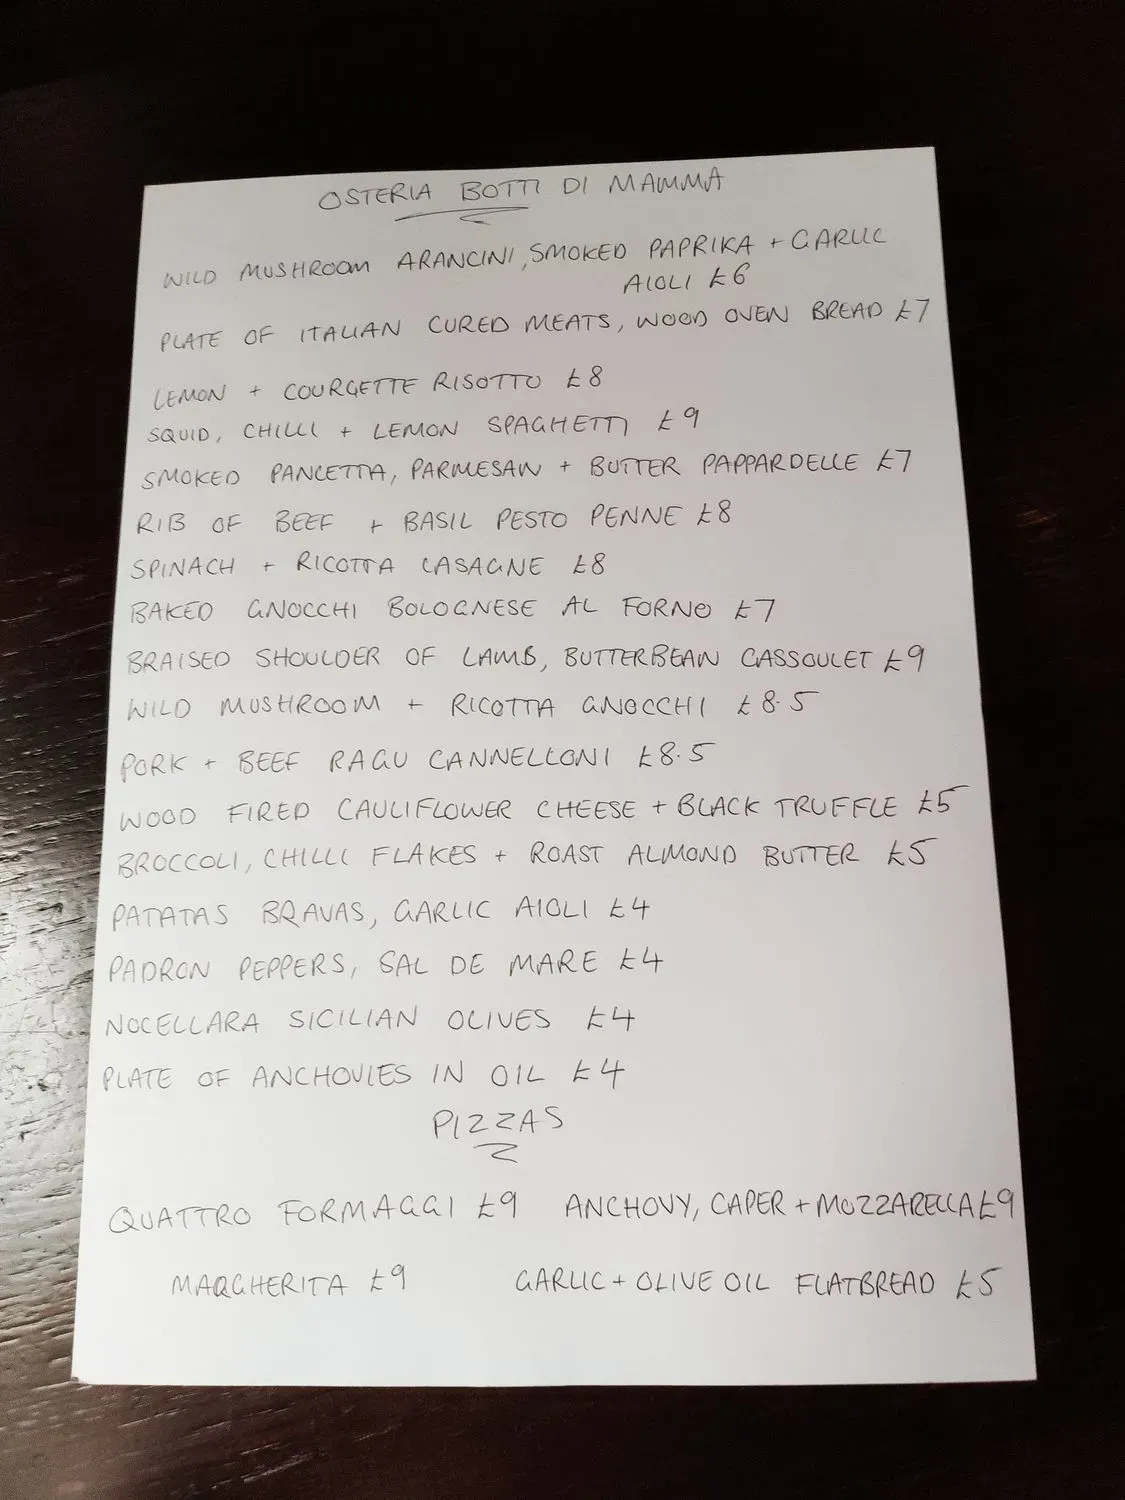 OSTERIA BOTTI DI MAMMA
WILD MUSHROOM ARANCINI, SMOKED PAPRIKA + GARLIC
AIOLI £6
PLATE OF ITALIAN CURED MEATS, WOOD OVEN BREAD £7
LEMON + COURGETTE RISOTTO £8
SQUID, CHILLI + LEMON SPAGHETTI £9
SMOKED PANCETTA, PARMESAN + BUTTER PAPPARDELLE £7
RIB OF BEEF + BASIL PESTO PENNE £8
SPINACH + RICOTTA LASAGNE £8
BAKED GNOCCHI BOLOGNESE AL FORNO £7
BRAISED SHOULDER OF LAMB, BUTTERBEAN CASSOULET £9
WILD MUSHROOM + RICOTTA GNOCCHI £8.5
PORK + BEEF RAGU CANNELLONI £8.5
WOOD FIRED CAULIFLOWER CHEESE + BLACK TRUFFLE £5
BROCCOLI, CHILLI FLAKES + ROAST ALMOND BUTTER £5
PATATAS BRAVAS, GARLIC AIOLI £4
PADRON PEPPERS, SAL DE MARE £4
NOCELLARA SICILIAN OLIVES £4
PLATE OF ANCHOVIES IN OIL £4
PIZZAS
QUATTRO FORMAGGI £9 ANCHOVY, CAPER + MOZZARELLA £9
MARGHERITA £9 GARLIC + OLIVE OIL FLATBREAD £5